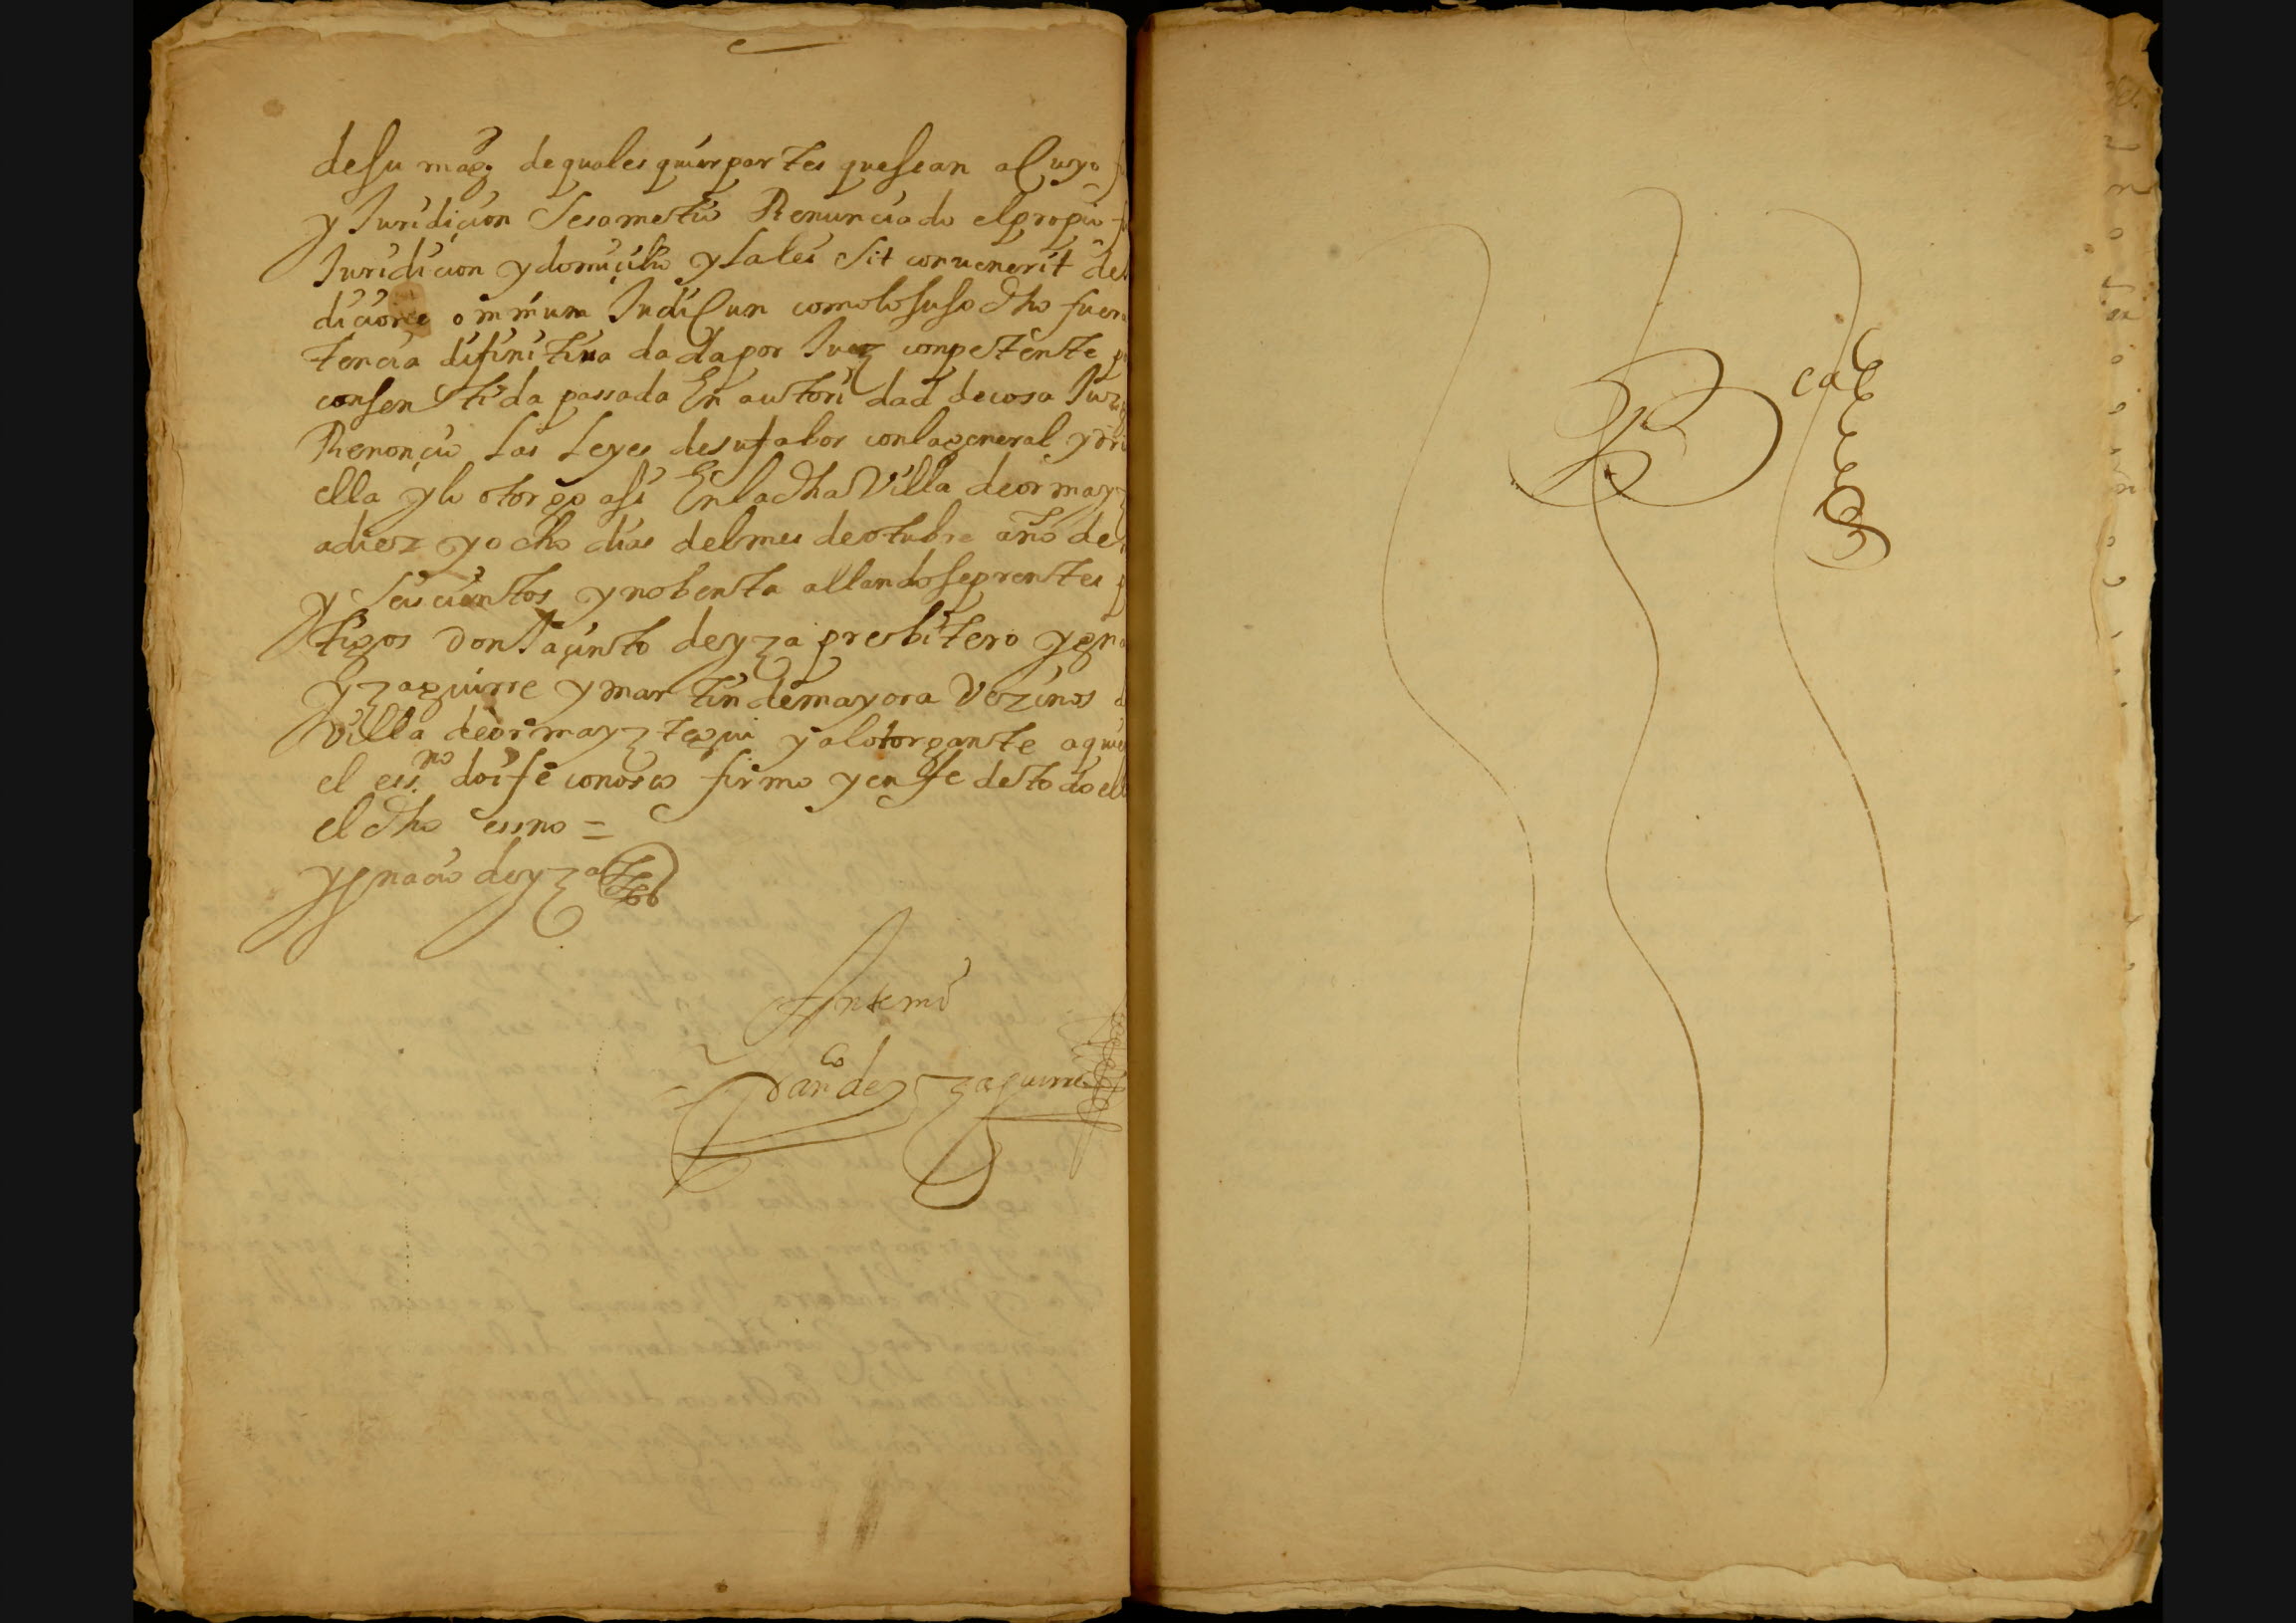 desu magᵈ de quales quier partes que sean a Cuyo
y Juridiçion Se sometio Renunciado el propio
Juridicion y domiçilio y la lei Sit conuenerit de
diçione omnium Judicun como lo suso dho fuer
tencia difinitiua dada por Juez conpetente
consentida passada En autoridad de cosa Juz
Renonçio Las Leyes de su fabor con la general y dr
ella y lo otorgo asi En la dha Villa de ormayz
a diez y ocho dias del mes de otubre año de
y Seiscientos y nobenta allandose prentes
tigos don Jaçinto de yza presbitero ygn
yzaguirre y martin de mayora Vezinos
Villa de ormayztegui y al otorgante a quie
el essno doi fe conosco firmo y en fe de todo ell
el dho essno =
ygnacio de yza
Ante mi
Franco de yzaguirre